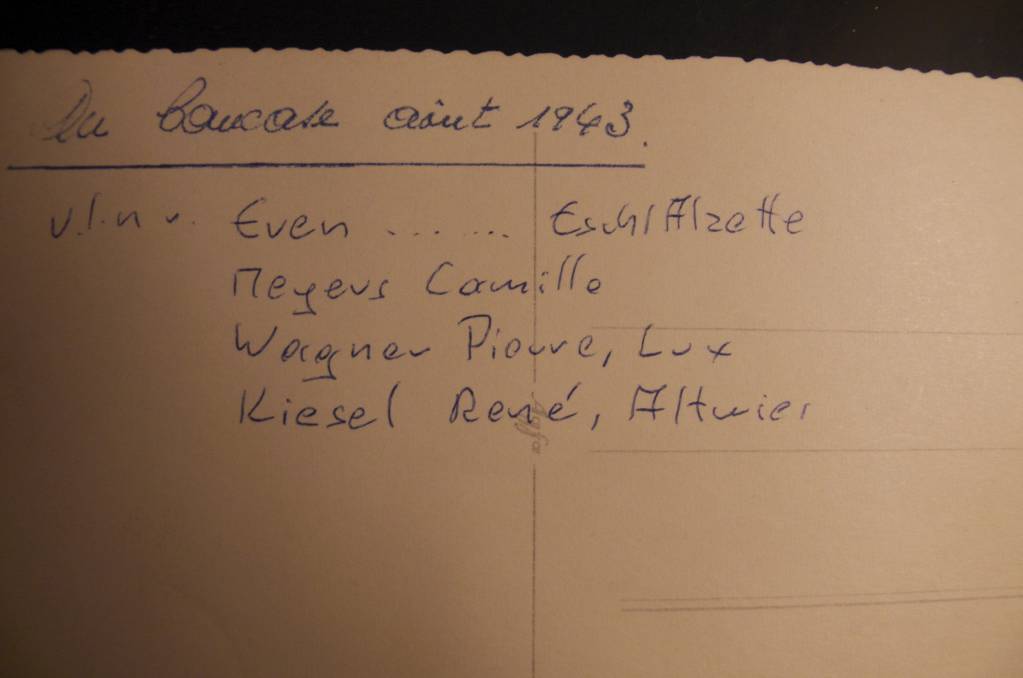 Du Caucase août 1943.
v.l.n.r. Even ...... Esch/Alzette
Meyers Camille
Wagner Pierre, Lux
Kiesel René, Altwies
Agfa